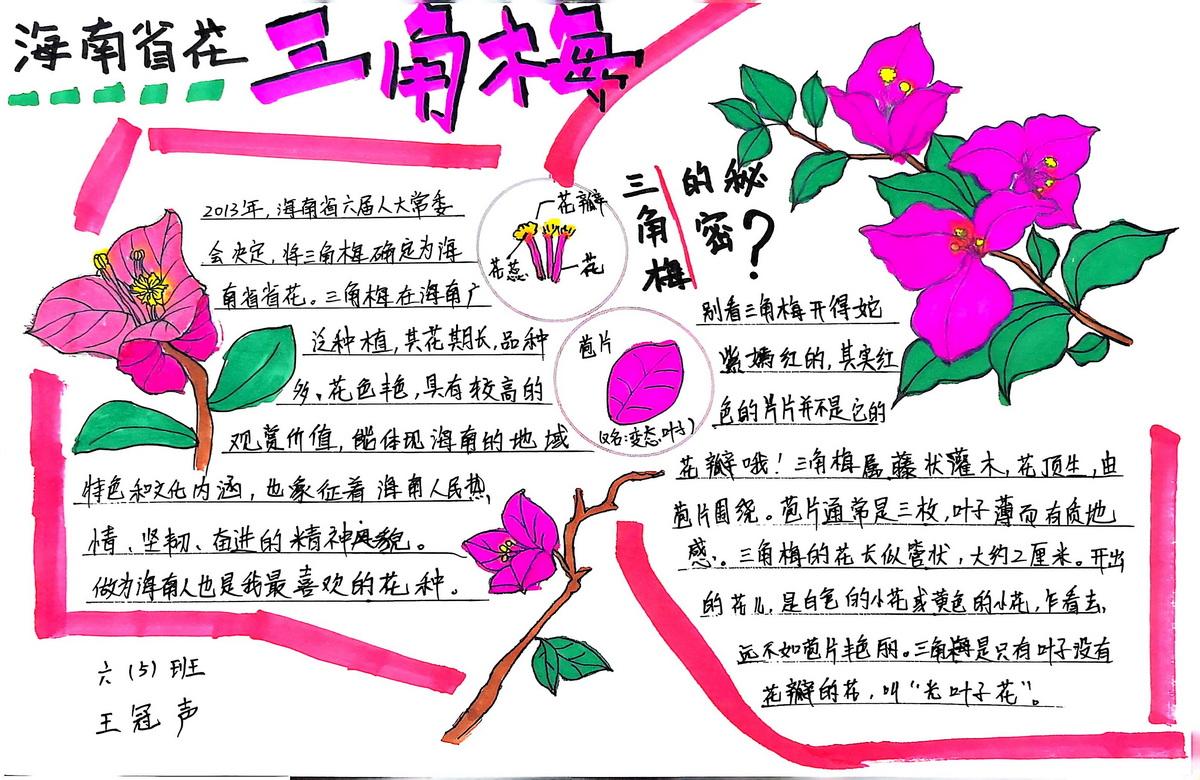 海南省花
三角梅
2013年，海南省六届人大常委
会决定，将三角梅确定为海
南省省花。三角梅在海南广
泛种植，其花期长，品种
多、花色丰艳，具有较高的
观赏价值，能体现海南的地域
特色和文化内涵，也象征着海南人民热
情、坚韧、奋进的精神风貌。
做为海南人也是我最喜欢的花种。
六（5）班
王冠声
花瓣
花蕊
花
苞片
（又名：变态叶子）
三角梅的秘密？
别看三角梅开得姹
紫嫣红的，其实红
色的片片并不是它的
花瓣哦！三角梅属藤状灌木，花顶生，由
苞片围绕。苞片通常是三枚，叶子薄而有质地
感。三角梅的花长似管状，大约2厘米。开出
的花儿，是白色的小花或黄色的小花，乍看去，
远不如苞片丰色丽。三角梅是只有叶子没有
花瓣的花，叫“光叶子花”。